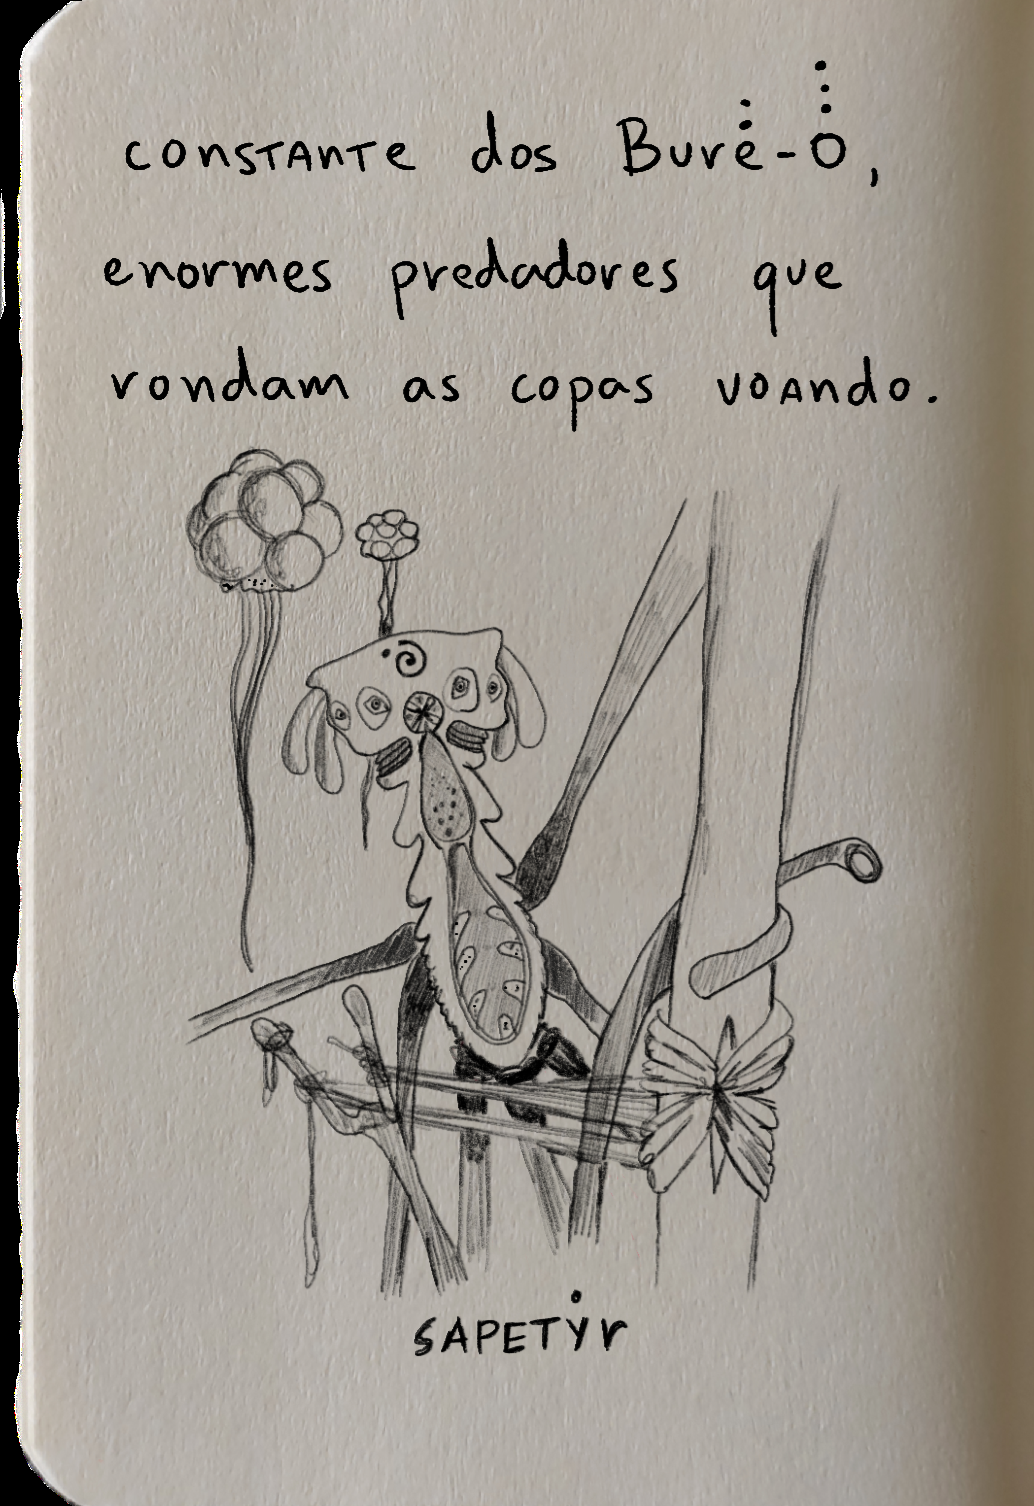 constante dos Burë-O⃛,
enormes predadores que
rondam as copas voando.
SAPETẎr